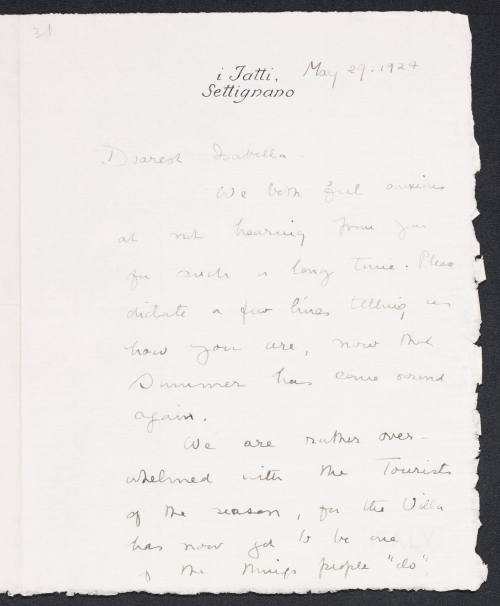 31
i Tatti,
Settignano
May 29. 1924
Dearest Isabella -
We both feel anxious
at not hearing from you
for such a long time. Please
dictate a few lines telling us
how you are, now that
Summer has come round
again.
We are rather over-
whelmed with the Tourists
of the season, for the Villa
has now got to be one
of the things people "do".